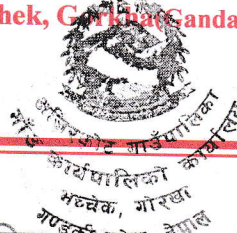 hek, Gorkha(Ganda
अजिरकोट गाउँपालिका
गाउँ कार्यपालिकाको कार्यालय
भच्चेक, गोरखा
गण्डकी प्रदेश, नेपाल